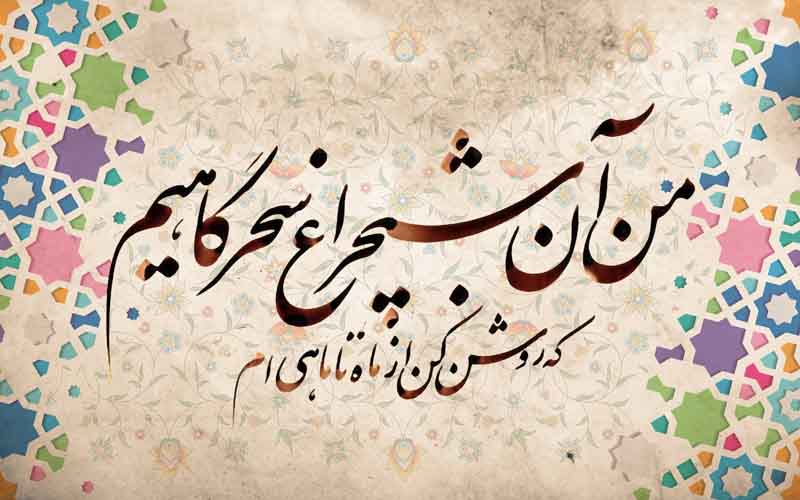 من آن شبچراغ سحرگاهیم
که روشن کن از ماه تا ماهی ام